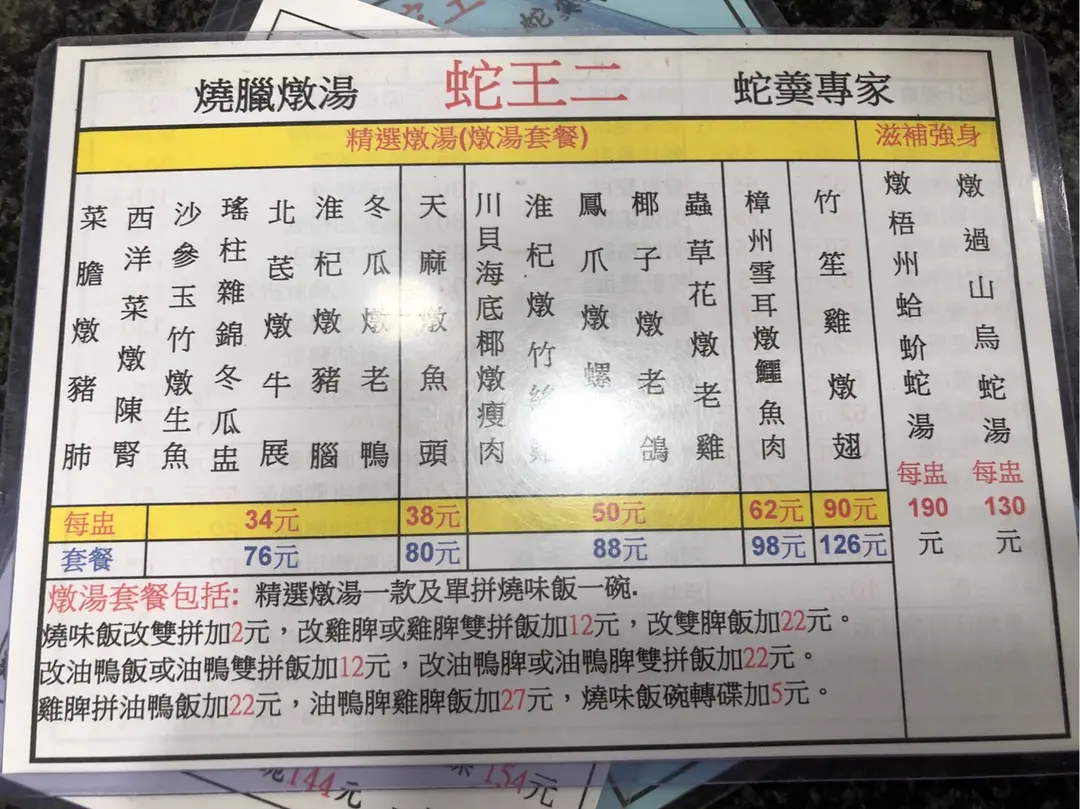 燒臘燉湯 蛇王二 蛇羹專家
精選燉湯(燉湯套餐) 滋補強身
菜膽燉豬肺
西洋菜燉陳腎
沙參玉竹燉生魚
瑤柱雜錦冬瓜盅
北芪燉牛展
淮杞燉豬腦
冬瓜燉老鴨
天麻燉魚頭
川貝海底椰燉瘦肉
淮杞燉竹
鳳爪燉螺
椰子燉老鴿
蟲草花燉老雞
樟州雪耳燉鱷魚肉
竹笙雞燉翅
燉梧州蛤蚧蛇湯 每盅 190 元
燉過山烏蛇湯 每盅 130 元
每盅 34元 38元 50元 62元 90元
套餐 76元 80元 88元 98元 126元
燉湯套餐包括: 精選燉湯一款及單拼燒味飯一碗.
燒味飯改雙拼加2元，改雞髀或雞髀雙拼飯加12元，改雙髀飯加22元。
改油鴨飯或油鴨雙拼飯加12元，改油鴨髀或油鴨髀雙拼飯加22元。
雞髀拼油鴨飯加22元，油鴨髀雞髀飯加27元，燒味飯碗轉碟加5元。
144元 154元